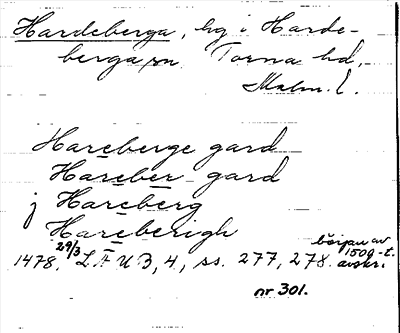 Hardeberga, hg i Harde-
berga sn Torna hd,
Malm. l.
Hareberge gard
Hareber gard
j Hareberg
Hareberigh
1478 29/3 LÄUB, 4, ss. 277, 278. början av 1500-t. avskr.
nr 301.